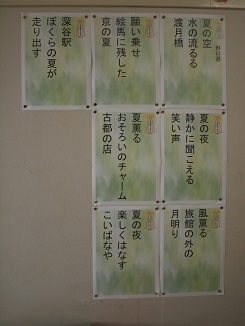 夏の空
水の流るる
渡月橋
願い乗せ
絵馬に残した
京の夏
深谷駅
ぼくらの夏が
走り出す
夏の夜
静かに聞こえる
笑い声
夏薫る
おそろいのチャーム
古都の店
風薫る
旅館の外の
月明り
夏の夜
楽しくはなす
こいばなや